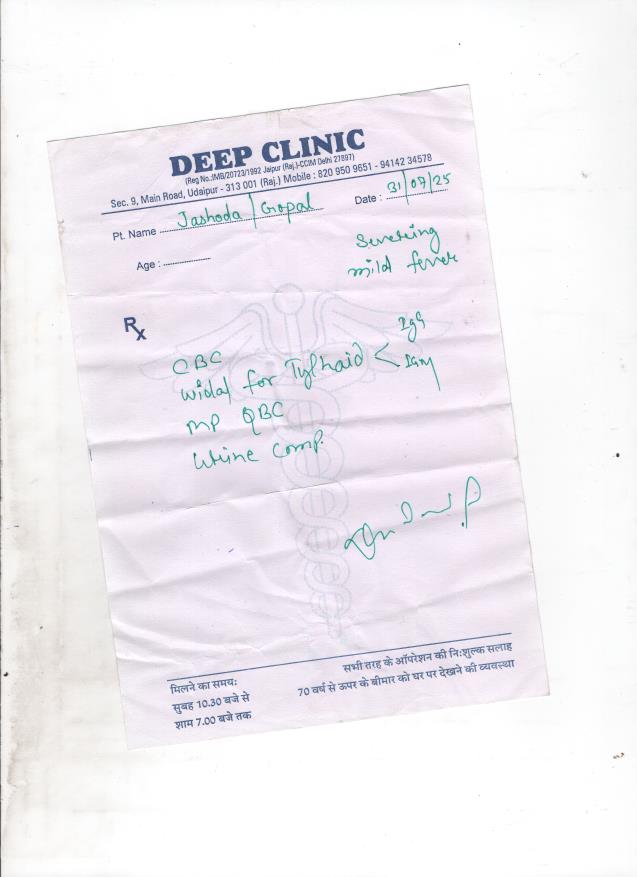 DEEP CLINIC
(Reg No.:IMB/20723/1992 Jaipur (Raj.)-CCIM Delhi 27897)
Sec. 9, Main Road, Udaipur - 313 001 (Raj.) Mobile : 820 950 9651 - 94142 34578
Pt. Name Jashoda/Gopal Date : 31/07/25
Age :
mild fever
Rx
CBC
IgG
Widal for Typhaid < IgM
MP QBC
Urine Comp.
मिलने का समय:
सुबह 10.30 बजे से
शाम 7.00 बजे तक
सभी तरह के ऑपरेशन की नि:शुल्क सलाह
70 वर्ष से ऊपर के बीमार को घर पर देखने की व्यवस्था